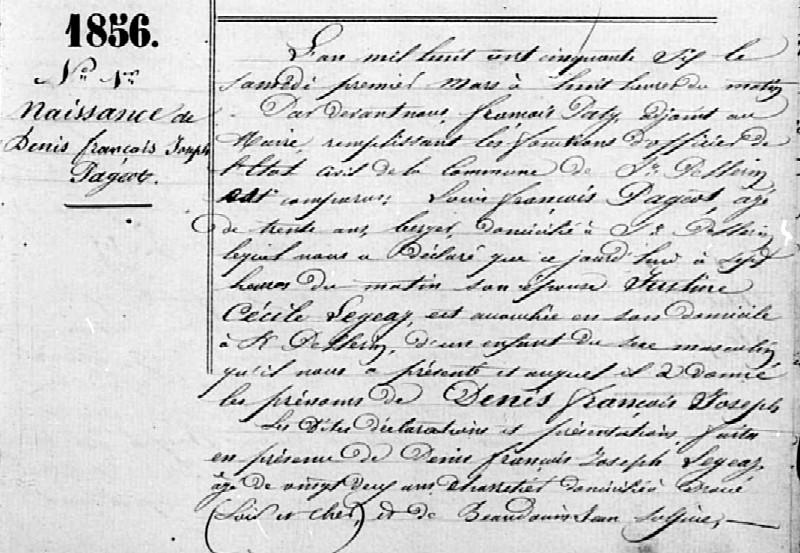 1856.
Naissance de
Denis françois Joseph
Pagéot.
L'an mil huit cent cinquante Six le
samedi premier Mars à huit heures du matin
Par devant nous, françois Paty, adjoint au
Maire, remplissant les fonctions d'officier de
l'Etat civil de la Commune de St. Pellerin
est comparu, Louis françois Pagéot, âgé
de trente ans, berger, domicilié à St. Pellerin,
lequel nous a déclaré que ce jourd'hui à sept
heures du matin son épouse Justine
Cécile Legeay, est accouchée en son domicile
à St. Pellerin, d'un enfant du sexe masculin
qu'il nous a présenté et auquel il a donné
les prénoms de Denis françois Joseph
Les dites déclarations et présentations faites
en présence de Denis françois Joseph Legeay
âgé de vingt deux ans Charretier domicilié à Droué
(Loir et Cher) et de Beaudouin Jean